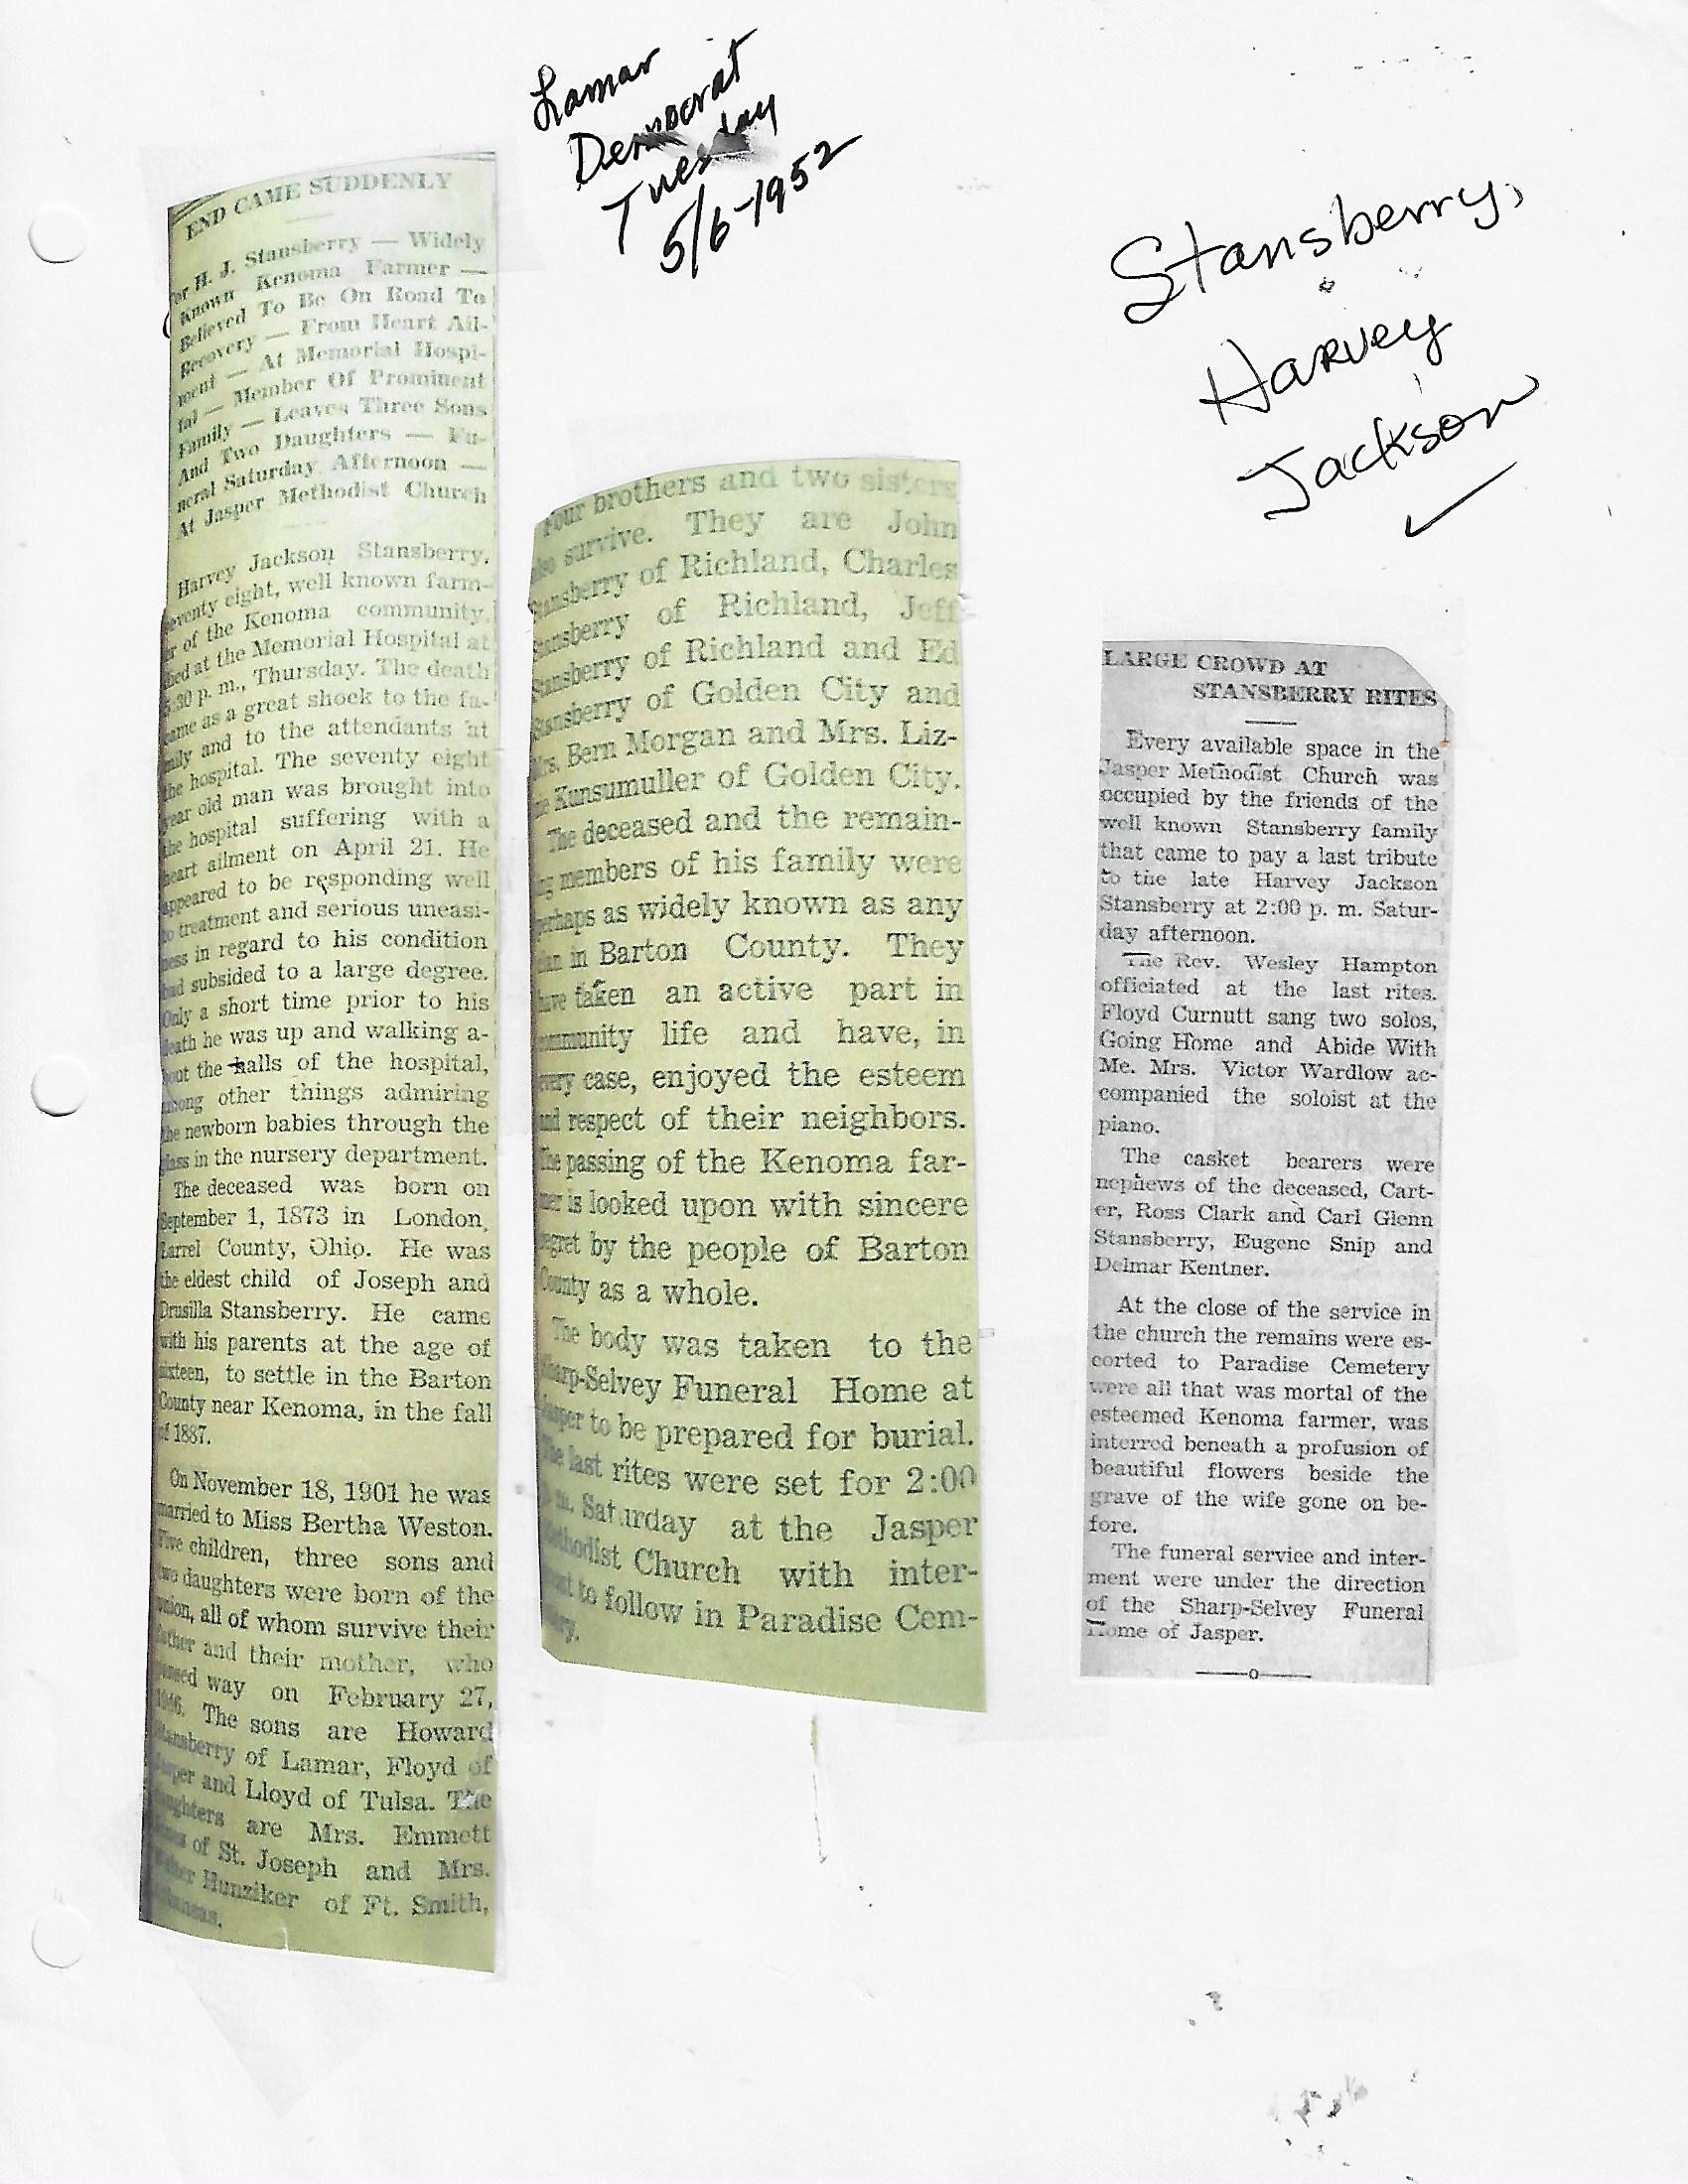 Lamar
Democrat
Tuesday
5/6-1952
Stansberry,
Harvey
Jackson
END CAME SUDDENLY
For H. J. Stansberry — Widely
Known Kenoma Farmer —
Believed To Be On Road To
Recovery — From Heart Ail-
ment — At Memorial Hospi-
tal — Member Of Prominent
Family — Leaves Three Sons
And Two Daughters — Fu-
neral Saturday Afternoon —
At Jasper Methodist Church
Harvey Jackson Stansberry,
seventy eight, well known farm-
er of the Kenoma community,
died at the Memorial Hospital at
:30 p. m., Thursday. The death
came as a great shock to the fa-
mily and to the attendants at
the hospital. The seventy eight
year old man was brought into
the hospital suffering with a
heart ailment on April 21. He
appeared to be responding well
to treatment and serious uneasi-
ness in regard to his condition
had subsided to a large degree.
Only a short time prior to his
death he was up and walking a-
bout the halls of the hospital,
among other things admiring
the newborn babies through the
glass in the nursery department.
The deceased was born on
September 1, 1873 in London,
Larrel County, Ohio. He was
the eldest child of Joseph and
Drusilla Stansberry. He came
with his parents at the age of
sixteen, to settle in the Barton
County near Kenoma, in the fall
of 1887.
On November 18, 1901 he was
married to Miss Bertha Weston.
Five children, three sons and
two daughters were born of the
union, all of whom survive their
father and their mother, who
passed way on February 27,
1946. The sons are Howard
Stansberry of Lamar, Floyd of
Jasper and Lloyd of Tulsa. The
daughters are Mrs. Emmett
of St. Joseph and Mrs.
Hunziker of Ft. Smith,
Arkansas.
Four brothers and two sisters
also survive. They are John
Stansberry of Richland, Charles
Stansberry of Richland, Jeff
Stansberry of Richland and Ed
Stansberry of Golden City and
Mrs. Bern Morgan and Mrs. Liz-
ze Kunsumuller of Golden City.
The deceased and the remain-
ing members of his family were
perhaps as widely known as any
clan in Barton County. They
have taken an active part in
community life and have, in
every case, enjoyed the esteem
and respect of their neighbors.
The passing of the Kenoma far-
mer is looked upon with sincere
regret by the people of Barton
County as a whole.
The body was taken to the
Sharp-Selvey Funeral Home at
Jasper to be prepared for burial.
The last rites were set for 2:00
p. m. Saturday at the Jasper
Methodist Church with inter-
ment to follow in Paradise Cem-
etery.
LARGE CROWD AT
STANSBERRY RITES
Every available space in the
Jasper Methodist Church was
occupied by the friends of the
well known Stansberry family
that came to pay a last tribute
to the late Harvey Jackson
Stansberry at 2:00 p. m. Satur-
day afternoon.
The Rev. Wesley Hampton
officiated at the last rites.
Floyd Curnutt sang two solos,
Going Home and Abide With
Me. Mrs. Victor Wardlow ac-
companied the soloist at the
piano.
The casket bearers were
nephews of the deceased, Cart-
er, Ross Clark and Carl Glenn
Stansberry, Eugene Snip and
Delmar Kentner.
At the close of the service in
the church the remains were es-
corted to Paradise Cemetery
were all that was mortal of the
esteemed Kenoma farmer, was
interred beneath a profusion of
beautiful flowers beside the
grave of the wife gone on be-
fore.
The funeral service and inter-
ment were under the direction
of the Sharp-Selvey Funeral
Home of Jasper.